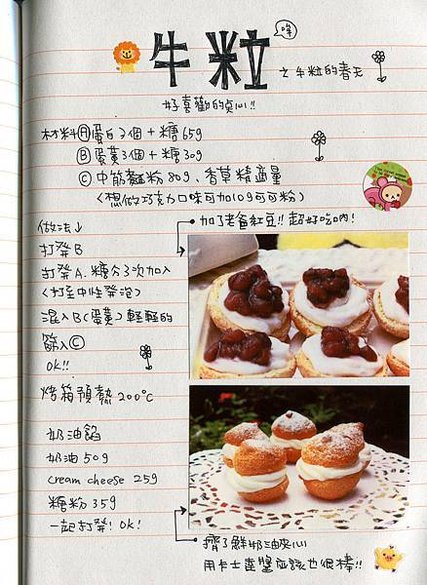 牛粒
哞
之牛粒的春天
好喜歡的点心!!
材料Ⓐ蛋白3個+糖65g
Ⓑ蛋黃3個+糖30g
Ⓒ中筋麵粉80g、香草精適量
(想做巧克力口味可加10g可可粉)
加了老爸紅豆!!超好吃吶!
做法↓
打發B
打發A.糖分3次加入
(打至中性發泡)
混入B(蛋黃)輕輕的
篩入Ⓒ
OK!!
烤箱預熱200°C
奶油餡
奶油50g
cream cheese 25g
糖粉35g
一起打發!OK!
擠了鮮奶油夾心
用卡士達醬應該也很棒!!